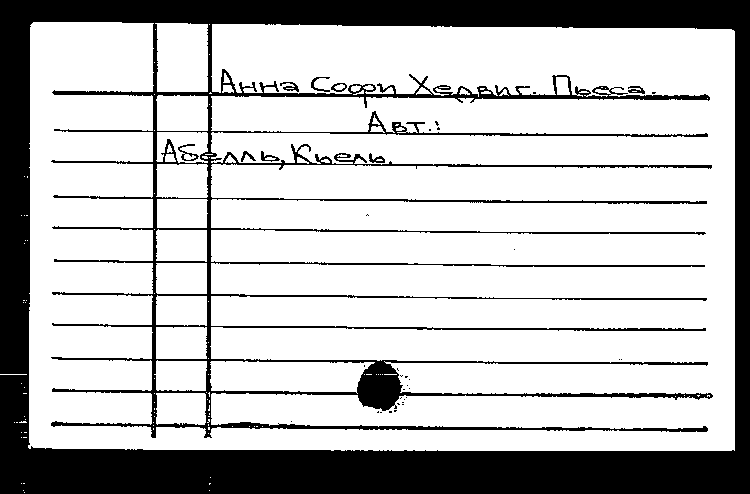 Анна Софи Хедвиг. Пьеса.
Авт.:
Абелль, Кьель.